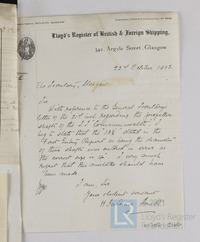 Lloyd's Register of British & Foreign Shipping,
342, Argyle Street, Glasgow
23rd October 1893
The Secretary, Glasgow
Sir
With reference to the General Secretary's
letter of the 21st inst. regarding the propeller
shaft of the S.S. "Commonwealth", I
beg to state that the 18¾ stated in the
First Entry Report as being the diameter
of these shafts was entered in error as
the correct size is I very much
regret that this mistake should have
been made.
I am, Sir
Your obedient servant
Lloyd's Register
Foundation